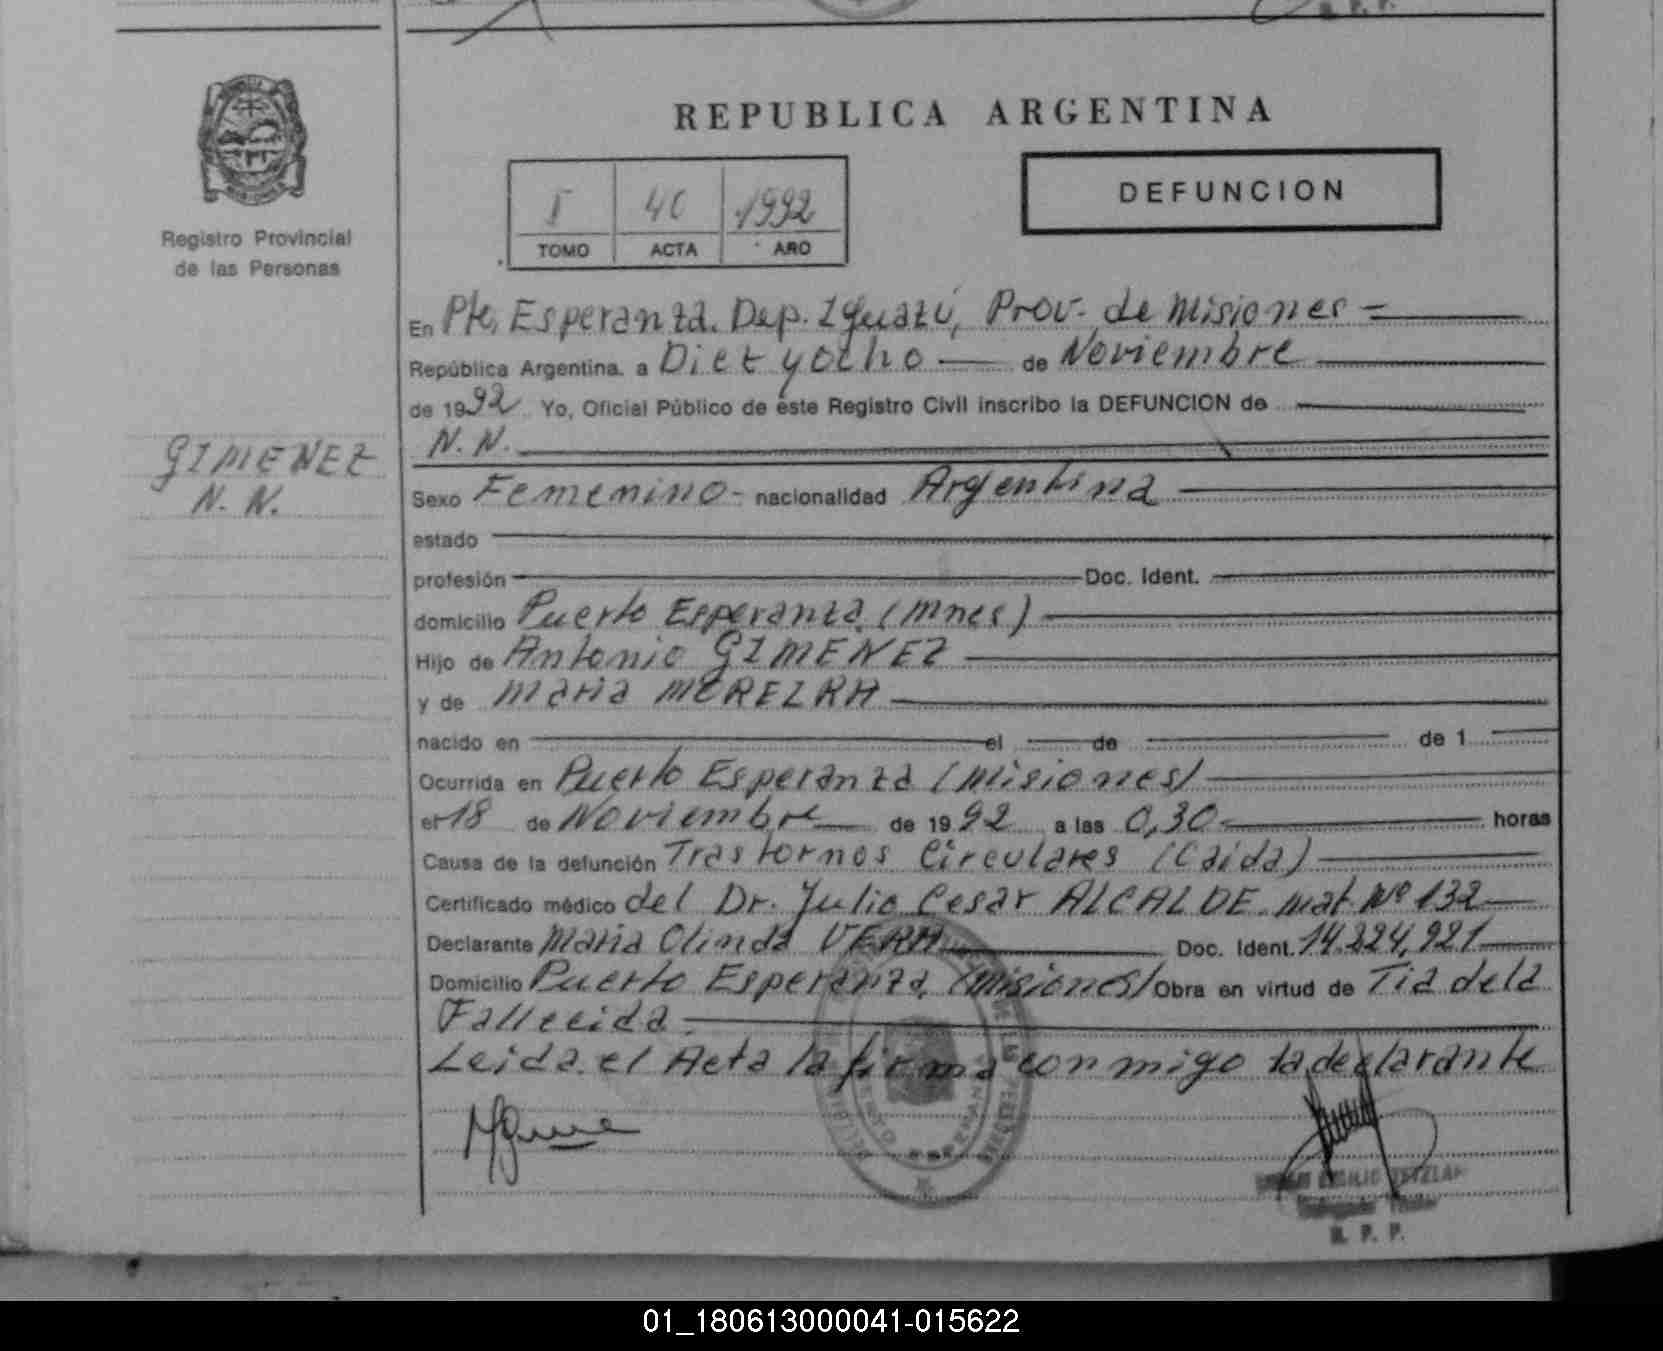 REPUBLICA ARGENTINA
I 40 1992
TOMO ACTA AÑO
DEFUNCION
Registro Provincial
de las Personas
GIMENEZ
N. N.
En Pto. Esperanza. Dep. Iguazú, Prov. de Misiones =
República Argentina. a Diez y ocho de Noviembre
de 1992 Yo, Oficial Público de éste Registro Civil inscribo la DEFUNCION de
N. N.
Sexo Femenino- nacionalidad Argentina
estado
profesión Doc. Ident.
domicilio Puerto Esperanza, (Mnes)
Hijo de Antonio GIMENEZ
y de Maria MEREIRA
nacido en el de de 1
Ocurrida en Puerto Esperanza (Misiones)
el 18 de Noviembre de 1992 a las 0,30 horas
Causa de la defunción Trastornos Circulares (Caida)
Certificado médico del Dr. Julio Cesar ALCALDE. mat. Nº 132
Declarante Maria Olinda VERA Doc. Ident. 14.224.921
Domicilio Puerto Esperanza, (Misiones) Obra en virtud de Tia de la
Fallecida.
Leida el Acta la firma conmigo la declarante
R. P. P.
01_180613000041-015622